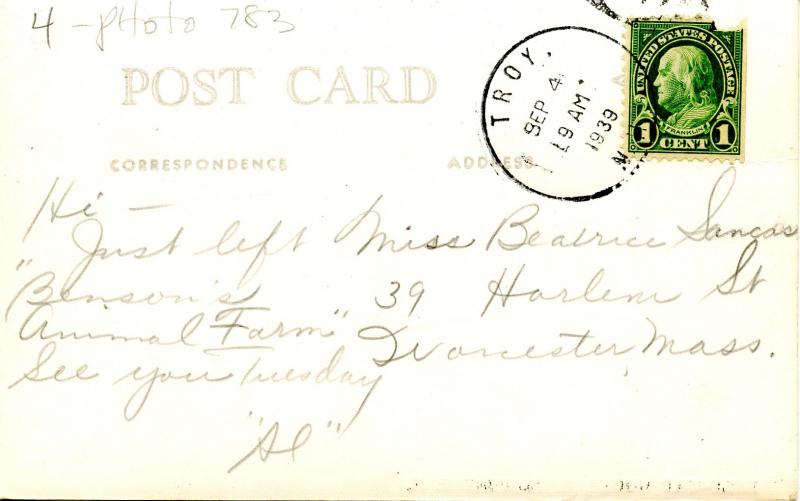 4 - PHOTO 783
POST CARD
CORRESPONDENCE
ADDRESS
TROY,
SEP 4
9 AM
1939
N
UNITED STATES POSTAGE
FRANKLIN
1 CENT 1
Hi —
Just left
"Benson's
Animal Farm"
See you Tuesday
"Al"
Miss Beatrice
39 Harlem St
Worcester, Mass.